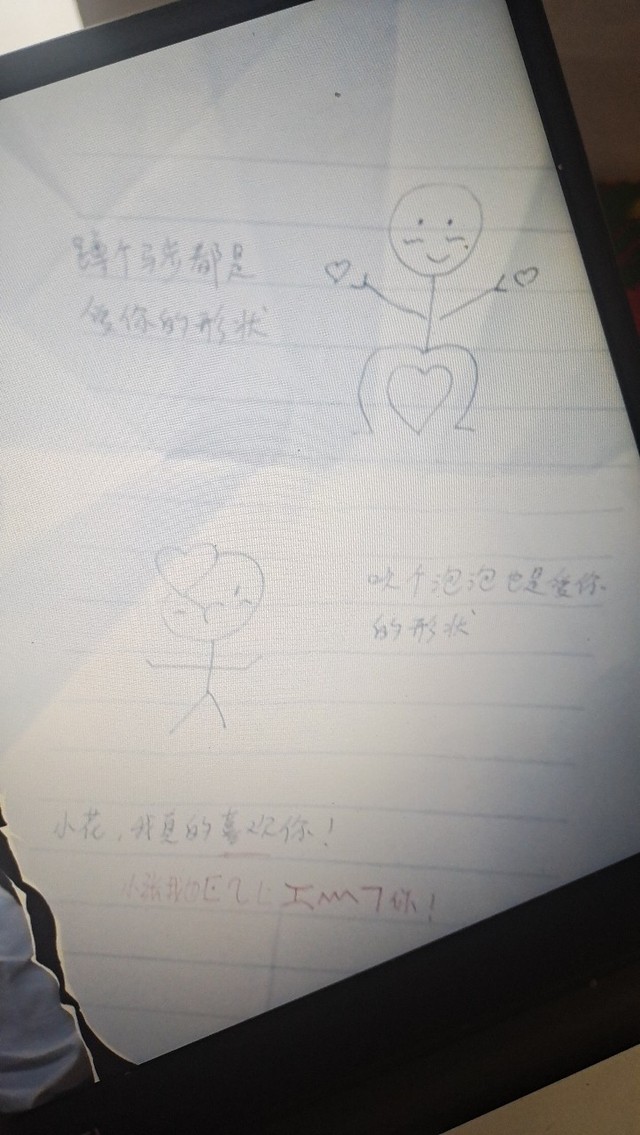 蹲个马步都是
爱你的形状
吹个泡泡也是爱你
的形状
小花，我真的喜欢你！
小张我也 你！